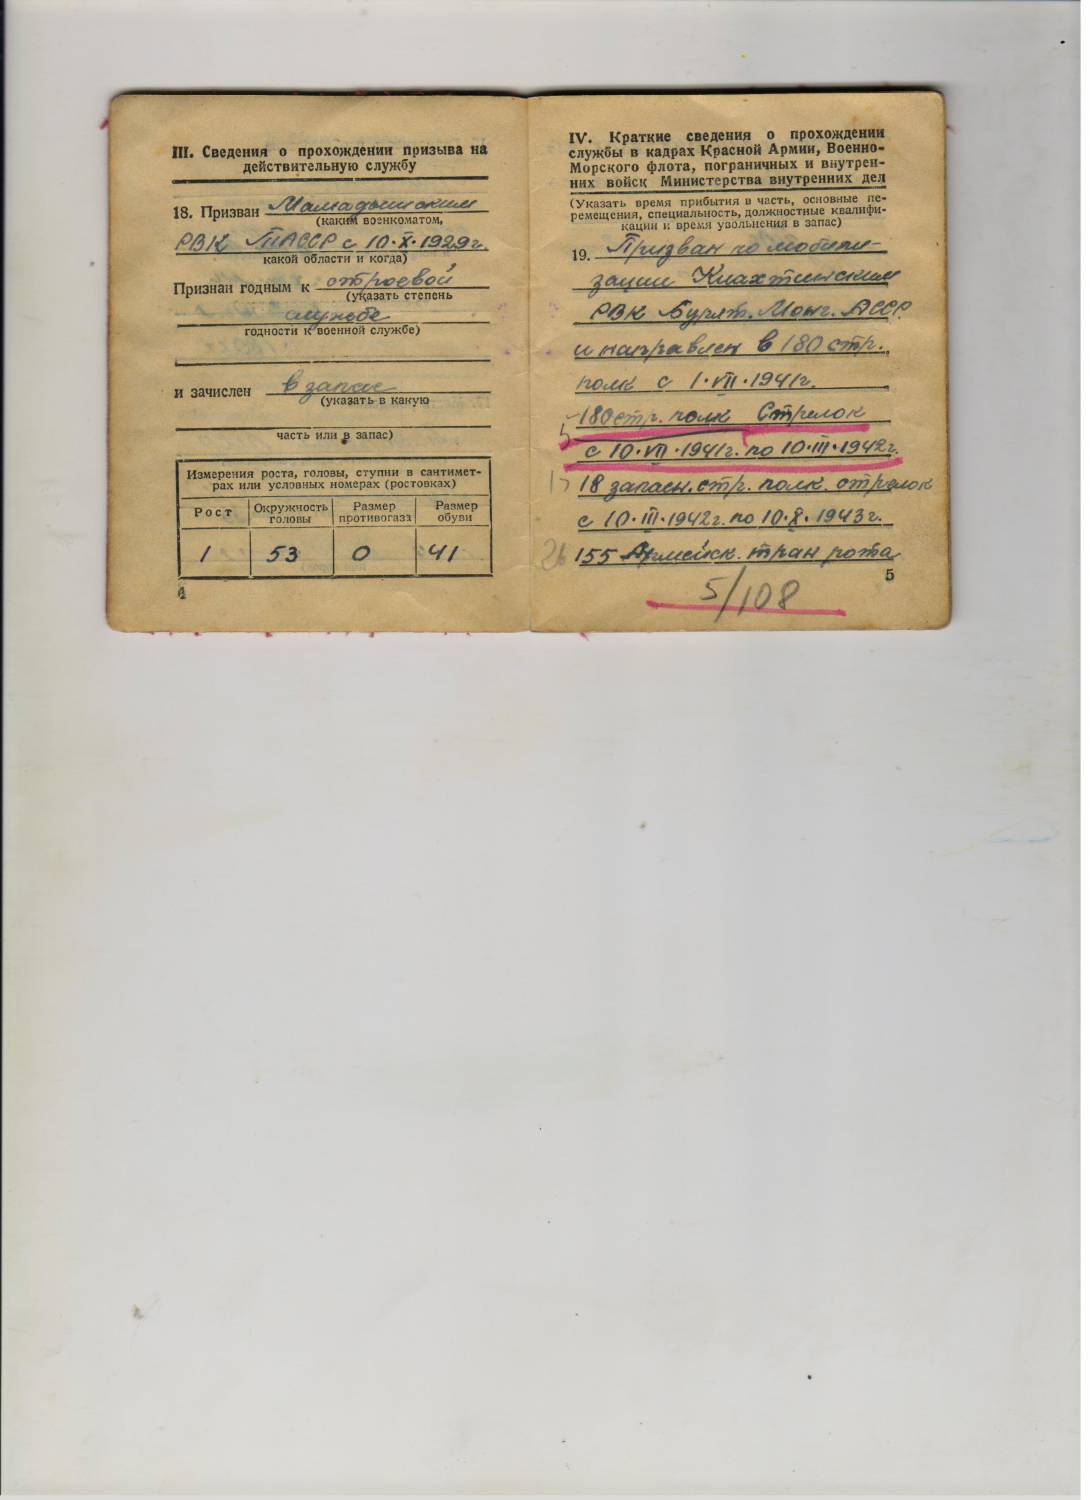 III. Сведения о прохождении призыва на
действительную службу
18. Призван Мамадышским
(каким военкоматом,
РВК ТАССР с 10·X·1929г.
какой области и когда)
Признан годным к строевой
(указать степень
службе
годности к военной службе)
и зачислен в запас
(указать в какую
часть или в запас)
Измерения роста, головы, ступни в сантимет-
рах или условных номерах (ростовках)
Рост Окружность головы Размер противогаза Размер обуви
1 53 0 41
4
IV. Краткие сведения о прохождении
службы в кадрах Красной Армии, Военно-
Морского флота, пограничных и внутрен-
них войск Министерства внутренних дел
(Указать время прибытия в часть, основные пе-
ремещения, специальность, должностные квалифи-
кации и время увольнения в запас)
19. Призван по мобили-
зации Кяхтинским
РВК Бурят. Монг. АССР.
и направлен в 180 стр.
полк с 1·VII·1941г.
180 стр. полк Стрелок
с 10·VII·1941г. по 10·III·1942г.
18 запасн. стр. полк. стрелок
с 10·III·1942г. по 10·X·1943г.
155 Армейск. тран рота
5
5/108